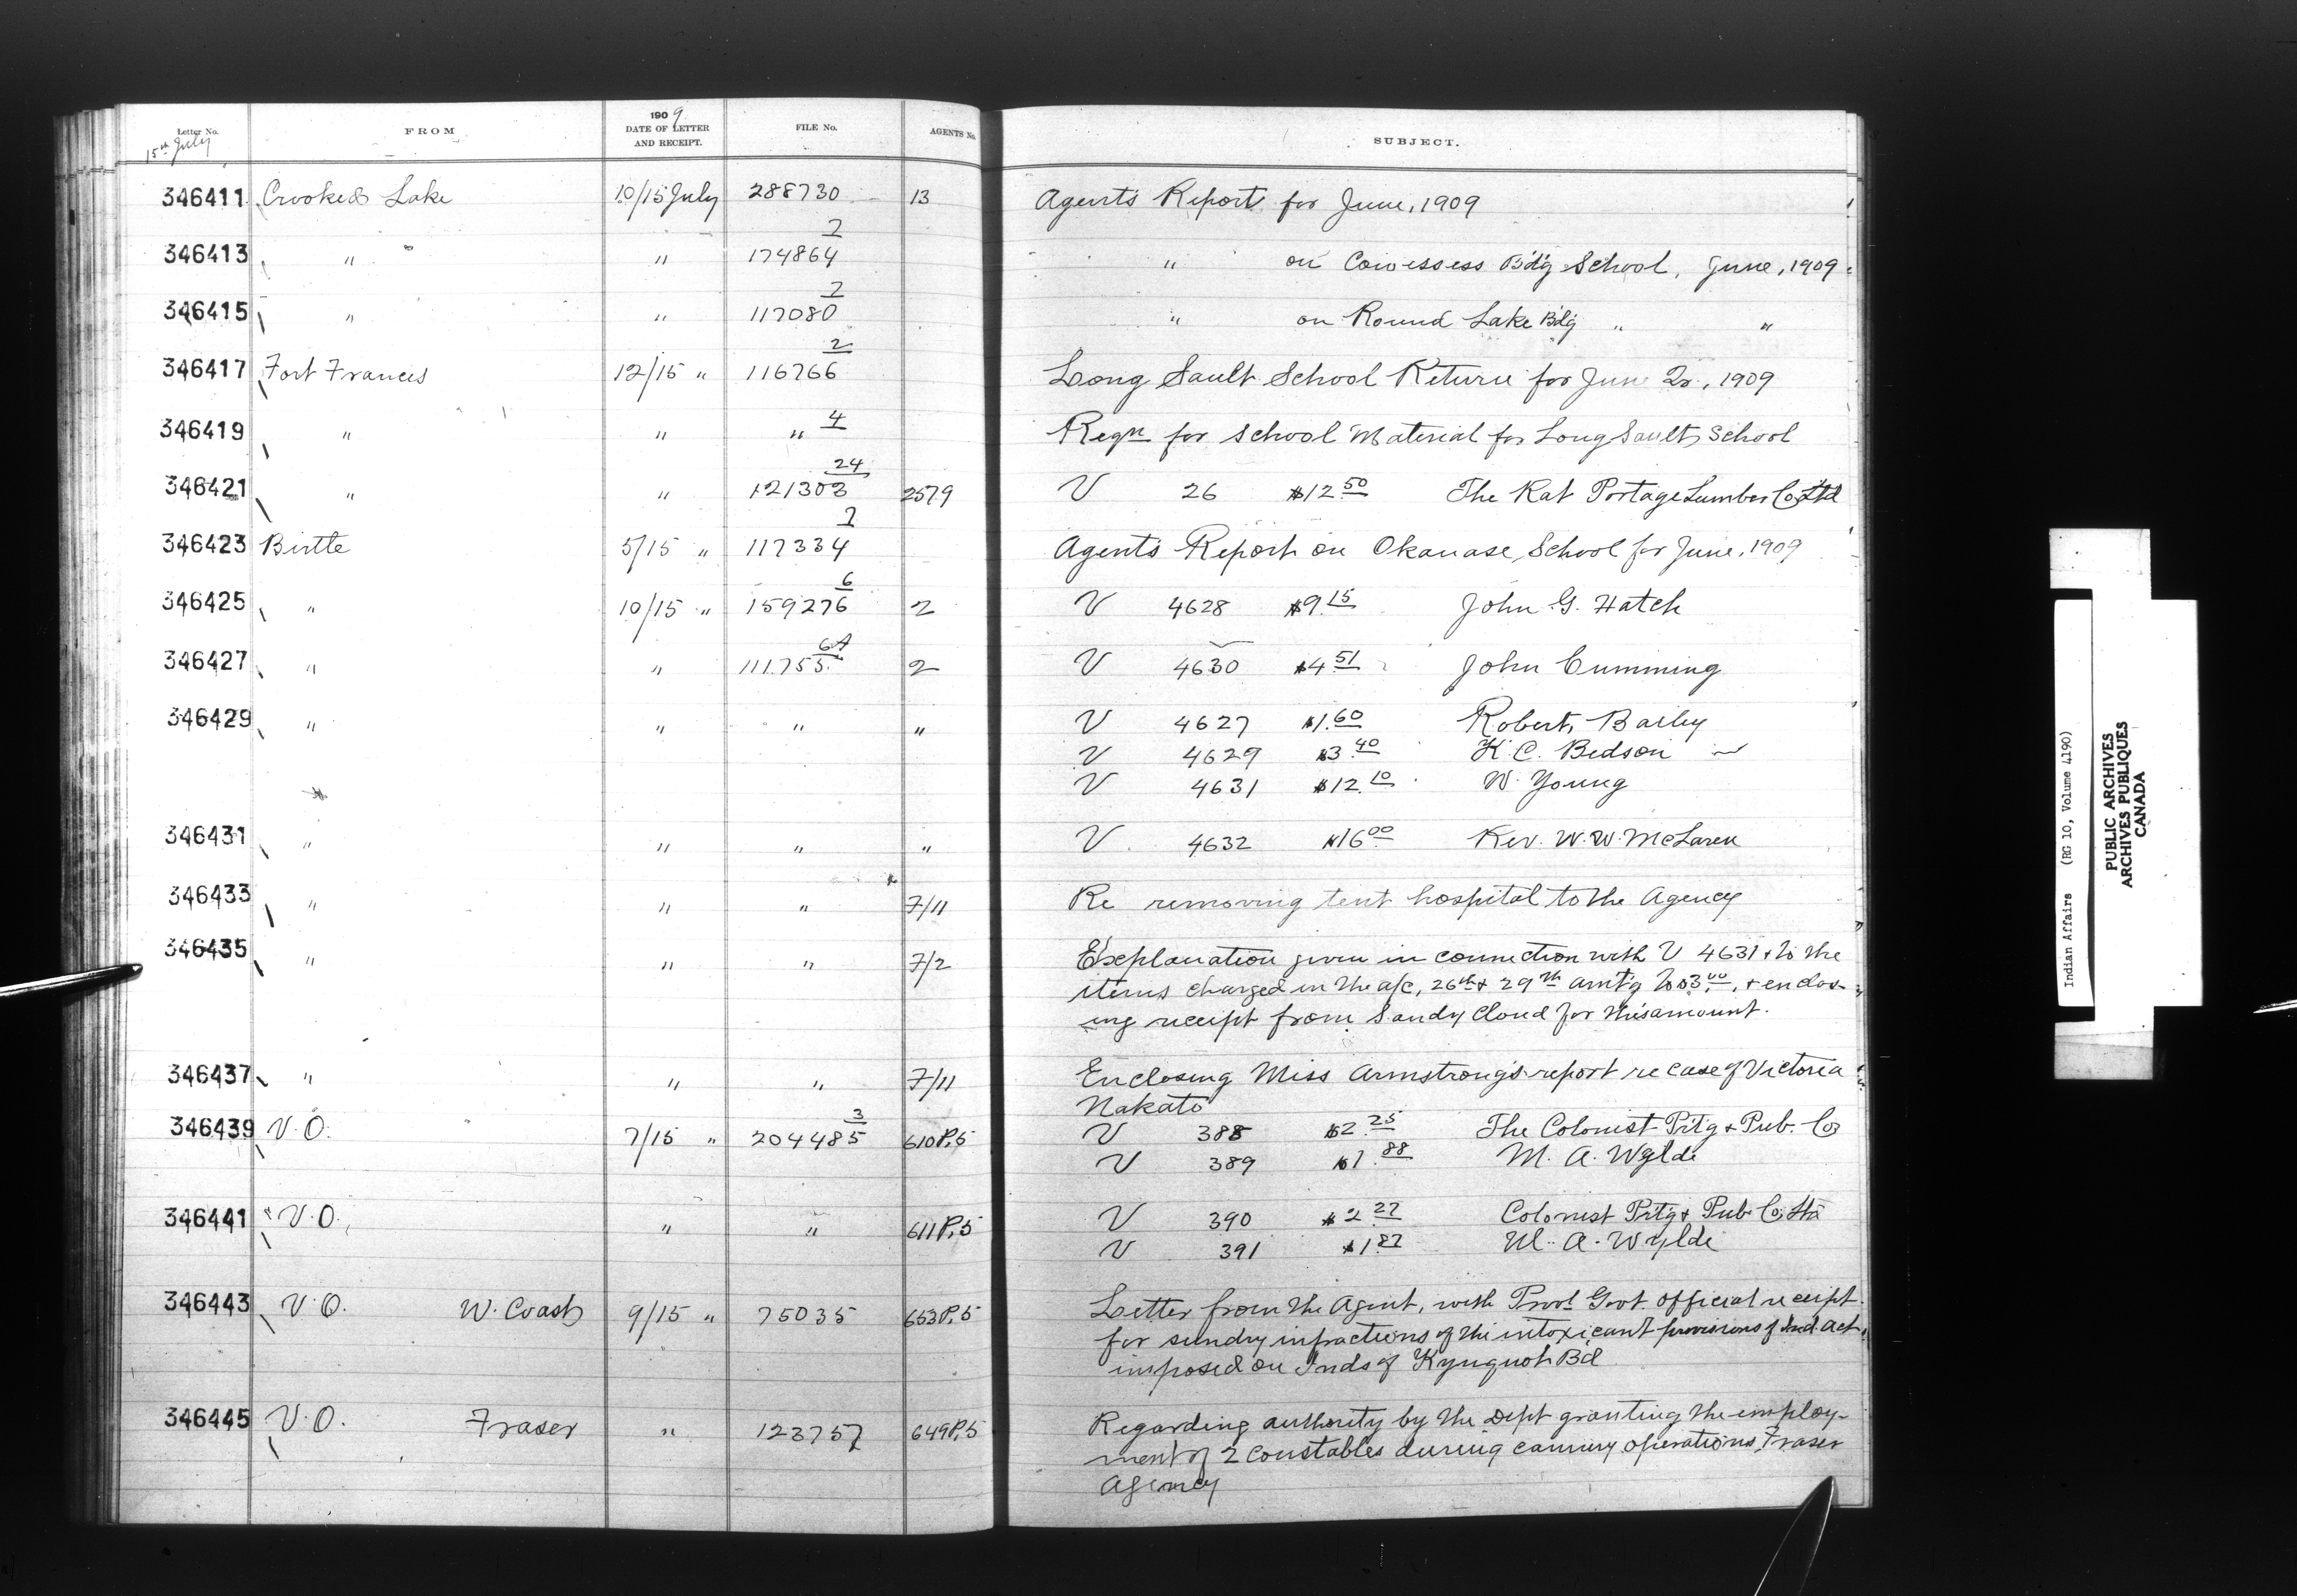 Letter No. FROM 1909 DATE OF LETTER AND RECEIPT. FILE No. AGENTS No. SUBJECT.
15th July
346411 Crooked Lake 10/15 July 288730 13 Agent's Report for June, 1909
346413 " " " 174864 2 " on Cowessess Bdg School, June, 1909
346415 " " 117080 2 " on Round Lake Bdg " "
346417 Fort Frances 12/15 " 116766 2 Long Sault School Return for June Qr., 1909
346419 " " " 4 Reqn for School Material for Long Sault School
346421 " " 121303 24 2579 V 26 $12.50 The Rat Portage Lumber Co Ltd
346423 Birtle 5/15 " 117334 2 Agent's Report on Okanase School for June, 1909
346425 " 10/15 " 159276 6 2 V 4628 $9.15 John G. Hatch
346427 " " 111755 6A 2 V 4630 $4.51 John Cumming
346429 " " " " V 4627 $1.60 Robert Bailey
V 4629 $3.40 K.C. Bedson
V 4631 $12.10 W. Young
346431 " " " " V 4632 $16.00 Rev. W.W. McLaren
346433 " " " 7/11 Re removing tent hospital to the Agency
346435 " " " 7/2 Explanation given in connection with V 4631 & to the
items charged in the a/c, 26th & 29th amt'g to $3.00, & enclos-
ing receipt from Sandy Cloud for this amount.
346437 " " " 7/11 Enclosing Miss Armstrong's report re case of Victoria
Nakato
346439 V.O. 7/15 " 204485 3 610P,5 V 388 $2.25 The Colonist Pritg & Pub. Co
V 389 $1.88 M. A. Wylde
346441 V.O. " " 611P,5 V 390 $2.27 Colonist Pritg & Pub Co Ltd
V 391 $1.87 M. A. Wylde
346443 V.O. W. Coast 9/15 " 75035 653P,5 Letter from the Agent, with Provl Govt official receipt
for sundry infractions of the intoxicant provisions of Ind. Act
imposed on Inds of Kyuquot Bd
346445 V.O. Fraser " 123757 649P,5 Regarding authority by the Dept granting the employ-
ment of 2 constables during cannery operations, Fraser
Agency
Indian Affairs (RG 10, Volume 4190)
PUBLIC ARCHIVES
ARCHIVES PUBLIQUES
CANADA